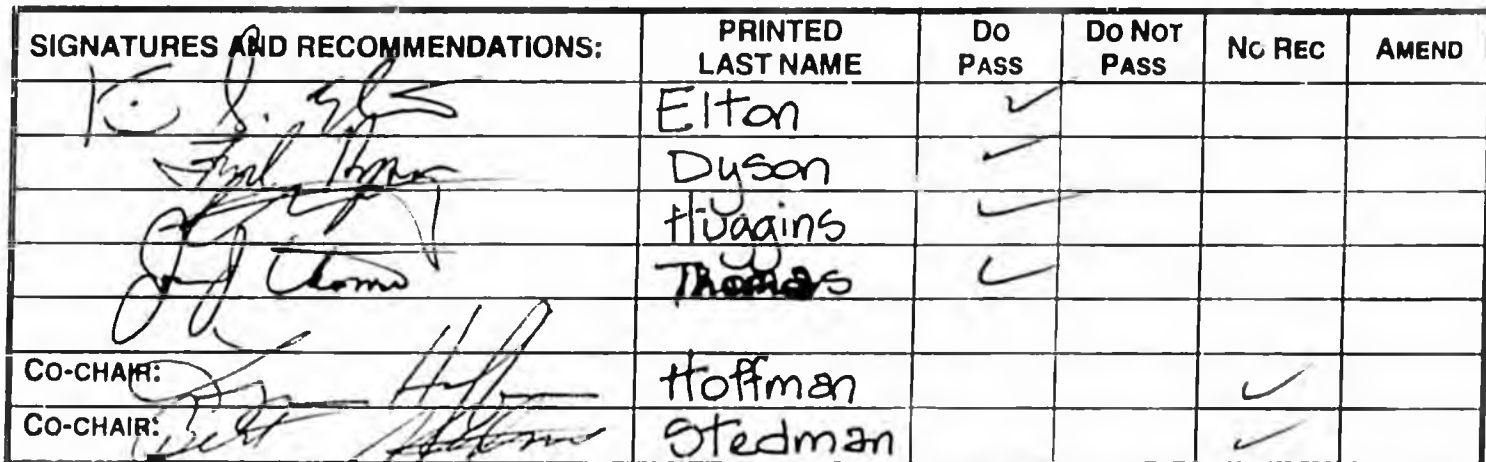 SIGNATURES AND RECOMMENDATIONS: PRINTED LAST NAME DO PASS DO NOT PASS NO REC AMEND
Elton ✓
Dyson ✓
Huggins ✓
Thomas ✓
CO-CHAIR: Hoffman ✓
CO-CHAIR: Bert Stedman ✓